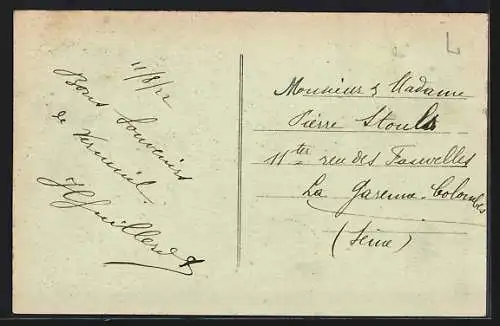 11/8/22
Bons Souvenirs
de Verneuil
Monsieur & Madame
Pierre
11ter rue des Fauvelles
La Garenne-Colombes
(Seine)
L